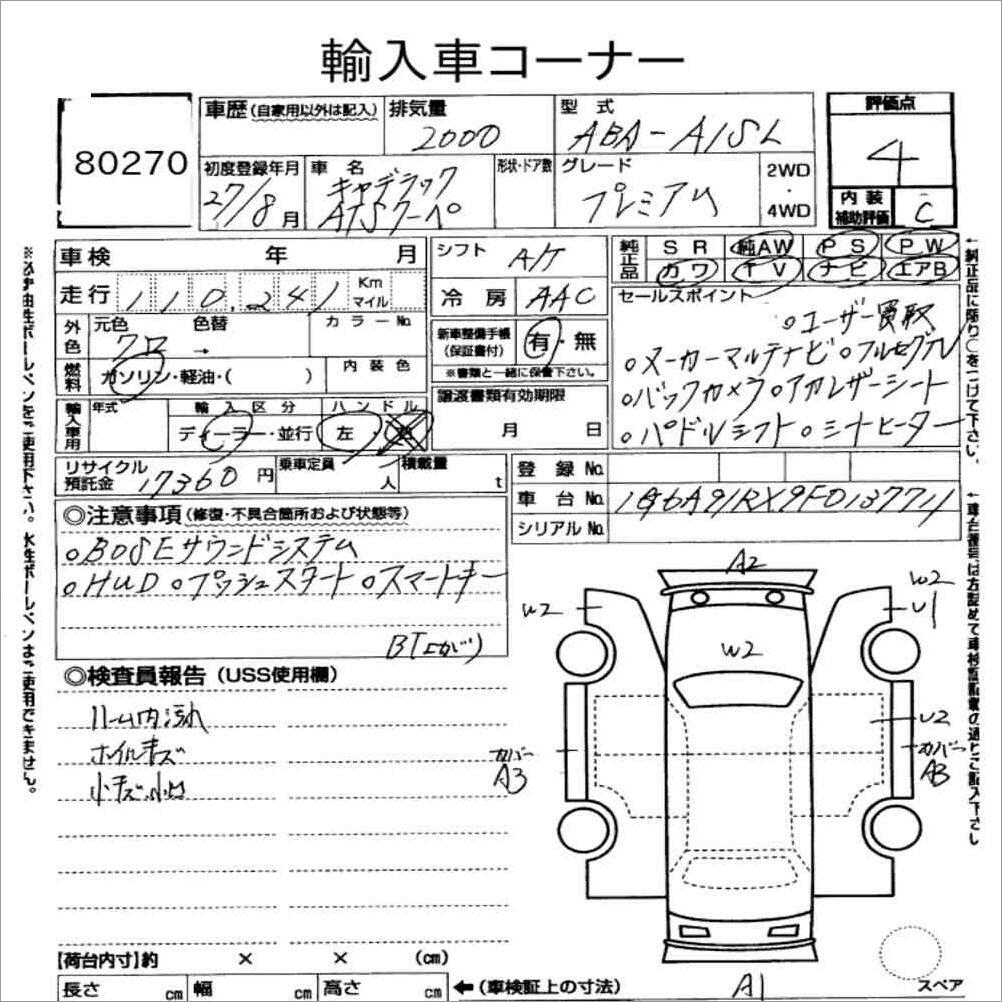 輸入車コーナー
80270
車歴(自家用以外は記入) 排気量 2000 型式 ABA-A1SL
評価点 4
初度登録年月 27/8月 車名 キャデラック ATSクーペ 形状・ドア数 グレード プレミアム 2WD・4WD
内装補助評価 C
車検 年 月 シフト A/T
純正品 SR 純AW PS PW
カワ TV ナビ エアB
走行 110,241 Km マイル 冷房 AAC
セールスポイント
外色 元色 クロ 色替 → カラーNo.
新車整備手帳(保証書付) 有・無
※書類と一緒に保管下さい。
燃料 ガソリン・軽油・( ) 内装色
○ユーザー買取
○メーカーマルチナビ ○フルセグTV
○バックカメラ ○アカレザーシート
○パドルシフト ○シートヒーター
輸入車用 年式 輸入区分 ディーラー・並行 ハンドル 左・右
譲渡書類有効期限 月 日
リサイクル預託金 17360円 乗車定員 人 積載量 t
登録No.
車台No. 1G6A91RX9F0137711
シリアルNo.
◎注意事項(修復・不具合箇所および状態等)
○BOSEサウンドシステム
○HUD ○プッシュスタート ○スマートキー
◎検査員報告(USS使用欄)
ルーム内汚れ
ホイルキズ
小キズ小凹
A2
W2
W2
W2
U1
U2
カバー A3
カバー A3
A1
スペア
【荷台内寸】約 × × (cm)
長さ cm 幅 cm 高さ cm ←(車検証上の寸法)
※必ず油性ボールペンをご使用下さい。水性ボールペンはご使用できません。
←純正品に限り○をつけて下さい。
←車台番号は左詰めで車検証記載の通りご記入下さい